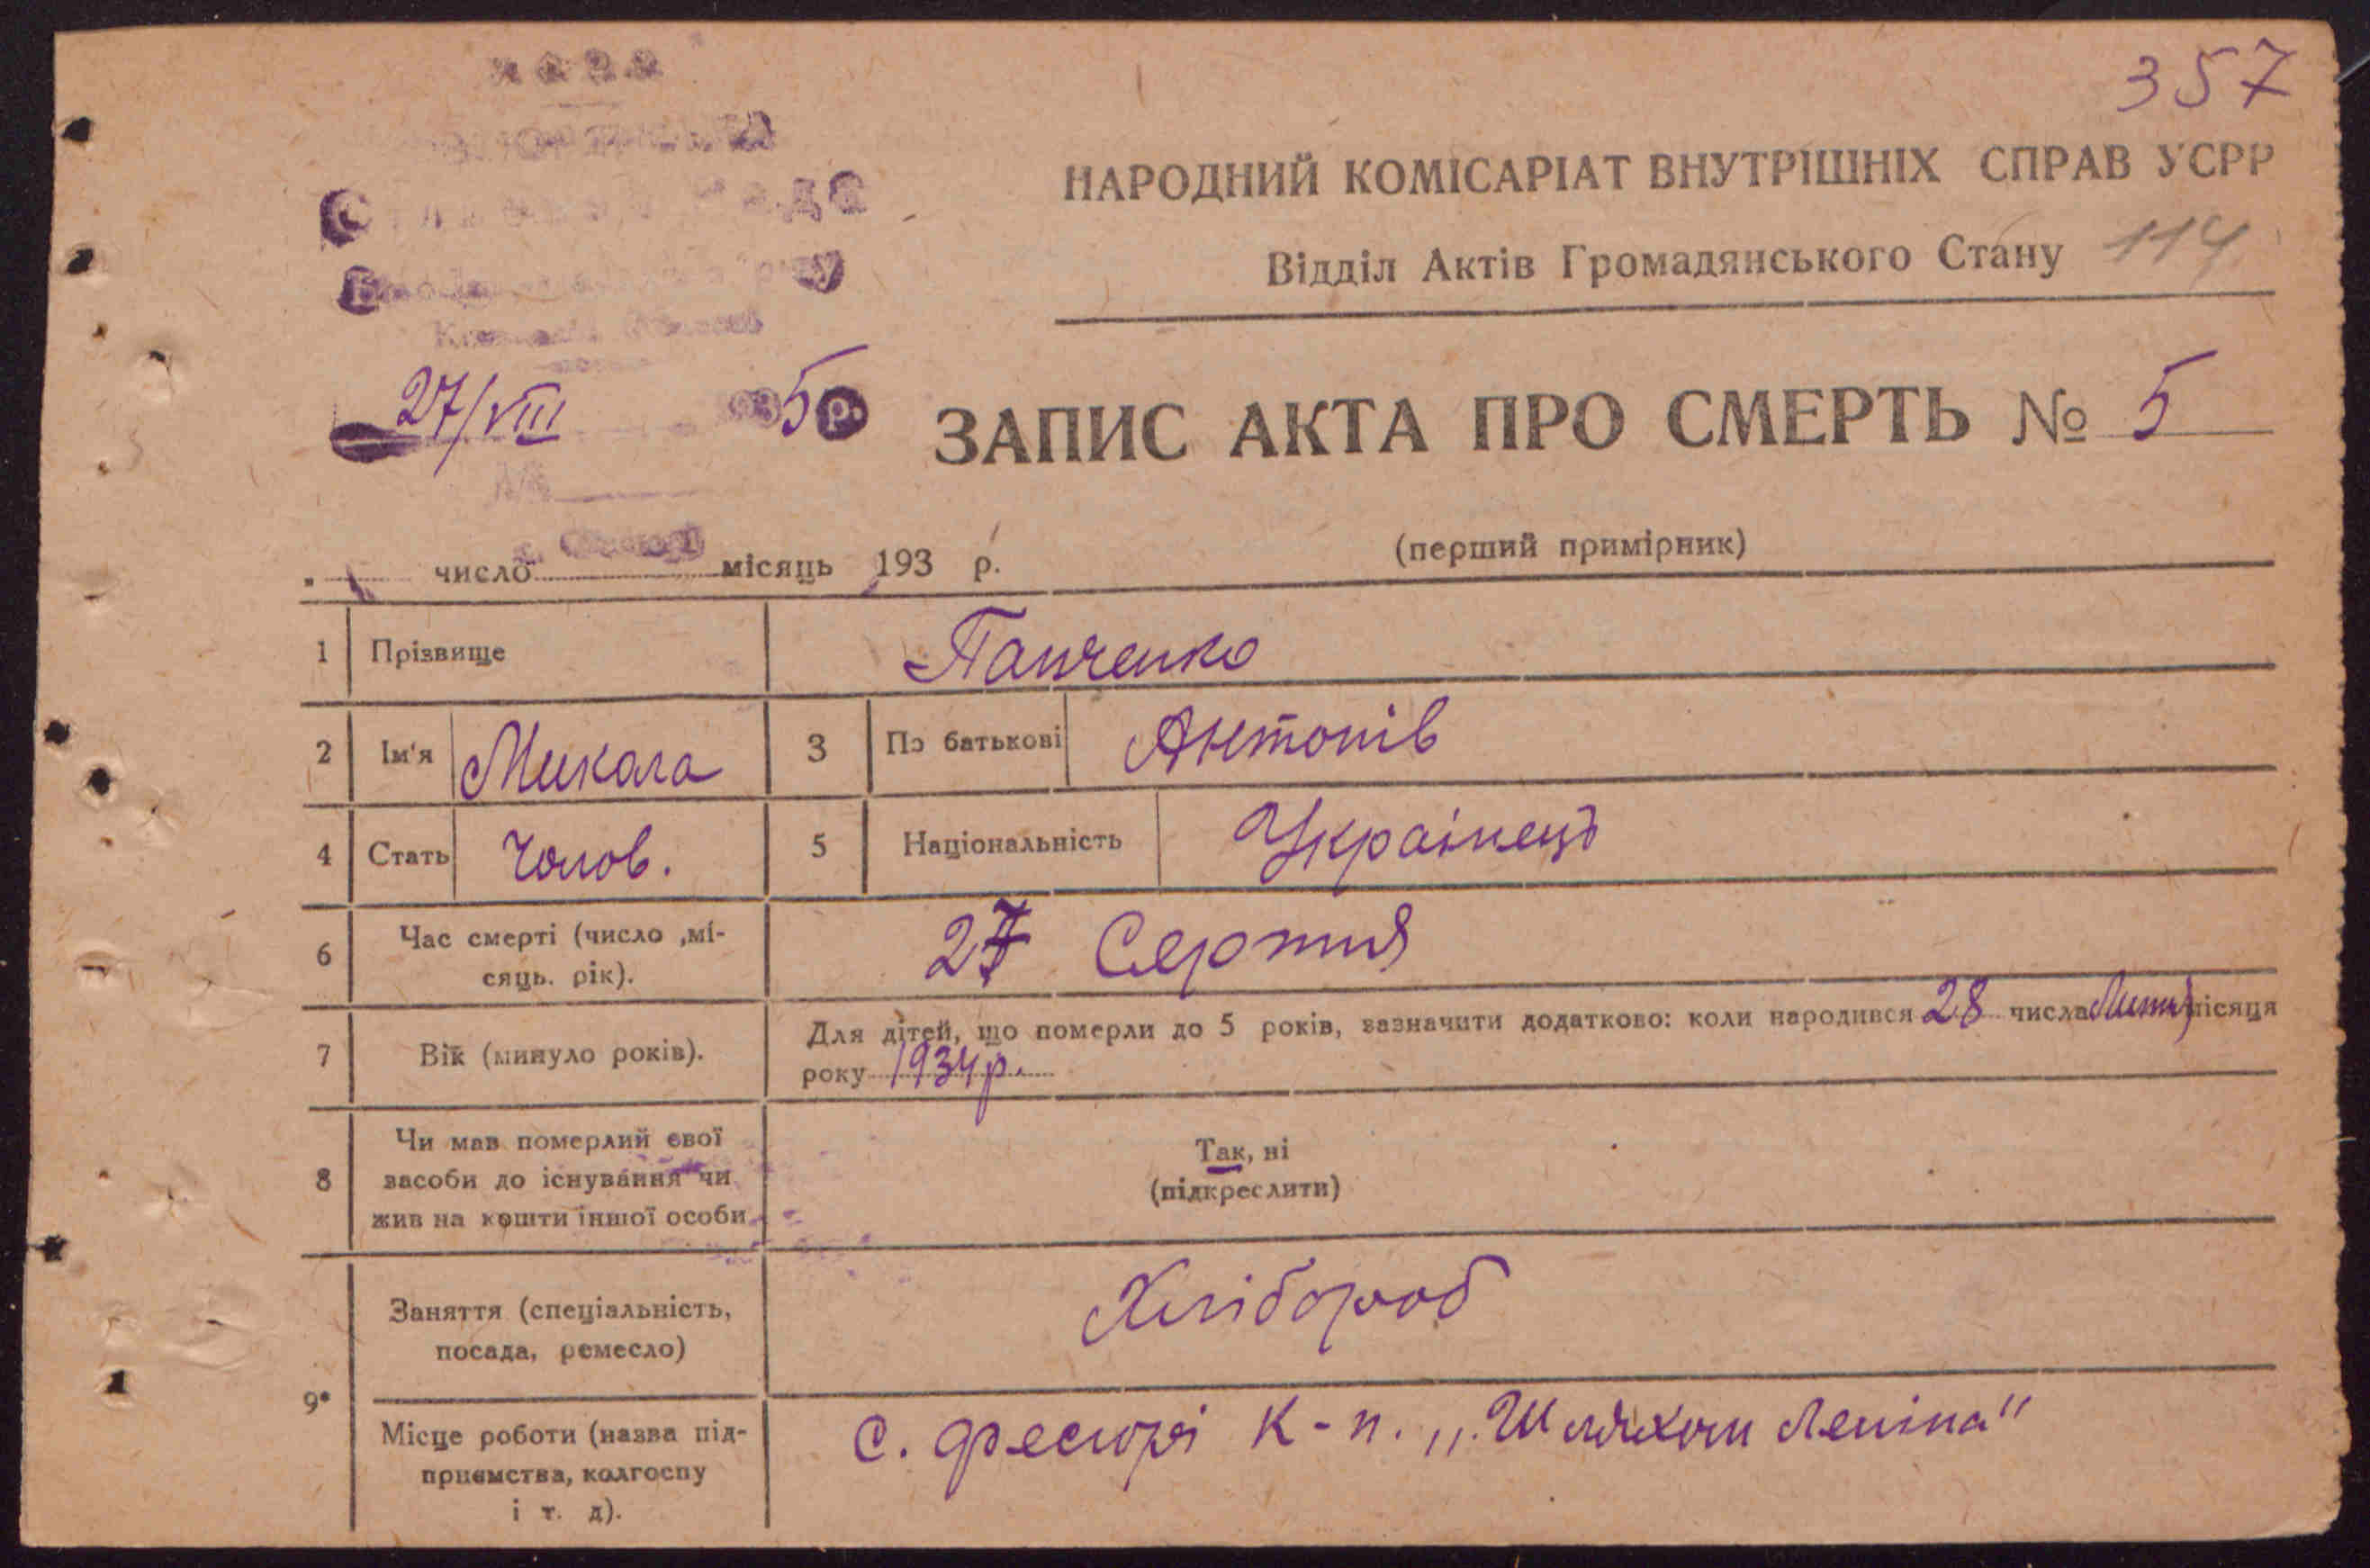 357
НАРОДНИЙ КОМІСАРІАТ ВНУТРІШНІХ СПРАВ УСРР
Відділ Актів Громадянського Стану 114
27/VIII 1935 р.
ЗАПИС АКТА ПРО СМЕРТЬ № 5
(перший примірник)
" число місяць 193 р.
1 Прізвище Панченко
2 Ім'я Микола 3 По батькові Антонів
4 Стать Чолов. 5 Національність Українець
6 Час смерті (число ,мі-
сяць. рік). 27 Серпня
7 Вік (минуло років). Для дітей, що померли до 5 років, зазначити додатково: коли народився 28 числа місяця
року 1934 р.
8 Чи мав померлий свої
засоби до існування чи
жив на кошти іншої особи
Так, ні
(підкреслити)
9*
Заняття (спеціальність,
посада, ремесло)
Хлібороб
Місце роботи (назва під-
приємства, колгоспу
і т. д).
с. Фесюри к-п. „Шляхом Леніна"